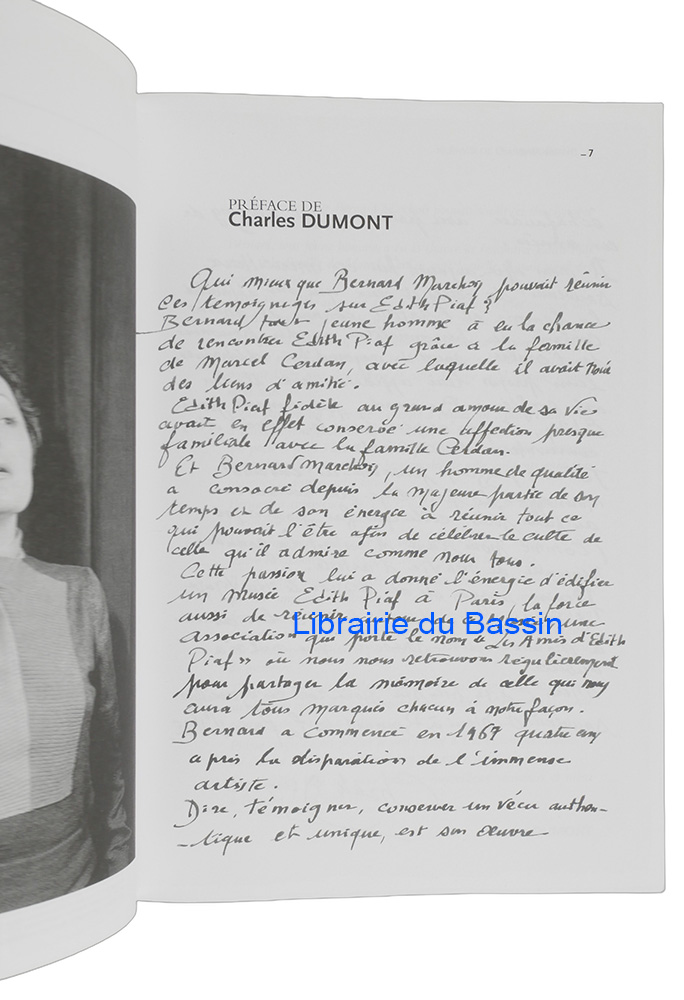 _7
PRÉFACE DE
Charles DUMONT
Qui mieux que Bernard Marchois pouvait réunir
ces temoignages sur Edith Piaf ?
Bernard tout jeune homme à eu la chance
de rencontrer Edith Piaf grâce à la famille
de Marcel Cerdan, avec laquelle il avait noué
des liens d'amitié.
Edith Piaf fidèle au grand amour de sa vie
avait en effet conservé une affection presque
familiale avec la famille Cerdan.
Et Bernard Marchois, un homme de qualité
a consacré depuis la majeure partie de son
temps et de son énergie à réunir tout ce
qui pouvait l'être afin de célébrer le culte de
celle qu'il admire comme nous tous.
Cette passion lui a donné l'énergie d'édifier
un musée Edith Piaf à Paris, la force
aussi de réunir autour de ce une
Librairie du Bassin
association qui porte le nom de Les Amis d'Edith
Piaf » où nous nous retrouvons régulièrement
pour partager la mémoire de celle qui nous
aura tous marqués chacun à notre façon.
Bernard a commencé en 1967 quatre ans
après la disparation de l'immense
artiste.
Dire, témoigner, conserver un vécu authen-
-tique et unique, est son œuvre